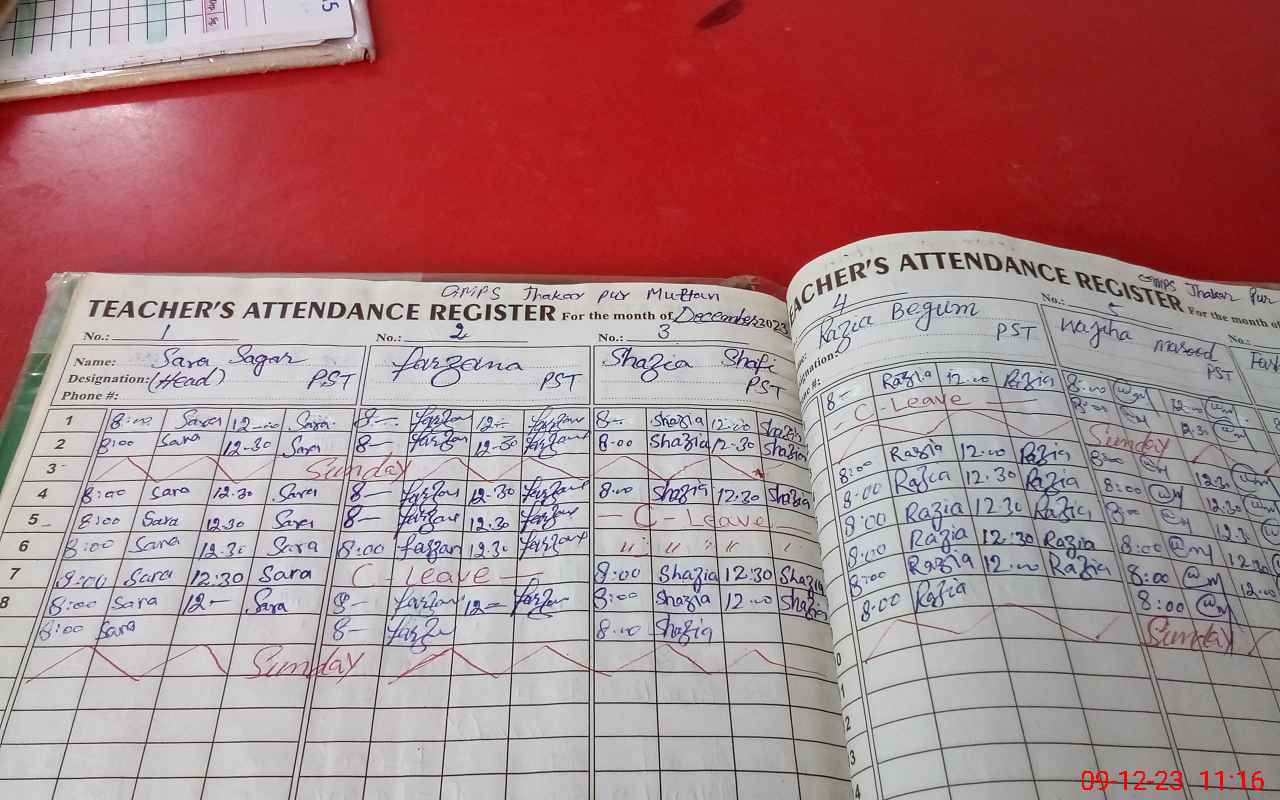 GMPS Thakar Pur Multan
TEACHER'S ATTENDANCE REGISTER For the month of December 2023
No.: 1 No.: 2 No.: 3
Name: Sara Sagar Farzana Shazia Shafi
Designation: (Head) PST PST PST
Phone #:
1 8:00 Sara 12-00 Sara 8- Farzan 12- Farzan 8- Shazia 12:00 Shazia
2 8:00 Sara 12.30 Sara 8- Farzan 12.30 Farzan 8:00 Shazia 12.30 Shazia
3 Sunday
4 8:00 Sara 12.30 Sara 8- Farzan 12.30 Farzan 8:00 Shazia 12.30 Shazia
5 8:00 Sara 12.30 Sara 8- Farzan 12.30 Farzan - C-Leave -
6 8:00 Sara 12.30 Sara 8:00 Farzan 12.30 Farzan " " " "
7 8:00 Sara 12:30 Sara C-Leave - 8:00 Shazia 12:30 Shazia
8 8:00 Sara 12- Sara 8- Farzan 12= Farzan 8:00 Shazia 12.00 Shazia
8:00 Sara 8- Farzan 8.00 Shazia
Sunday
GMPS Thakar Pur
TEACHER'S ATTENDANCE REGISTER For the month of
4 No.: 5 No.:
Razia Begum Wajiha Masood
PST PST
8- Razia 12.00 Razia 8:00 12:00
C-Leave 8:00 12.30
Sunday
8:00 Razia 12.00 Razia 8:00 12.30
8:00 Razia 12.30 Razia 8:00 12.30
8:00 Razia 12.30 Razia 8:00 12.30
8:00 Razia 12:30 Razia 8:00 12.30
8:00 Razia 12.00 Razia 8:00 12.00
8:00 Razia 8:00
Sunday
09-12-23 11:16